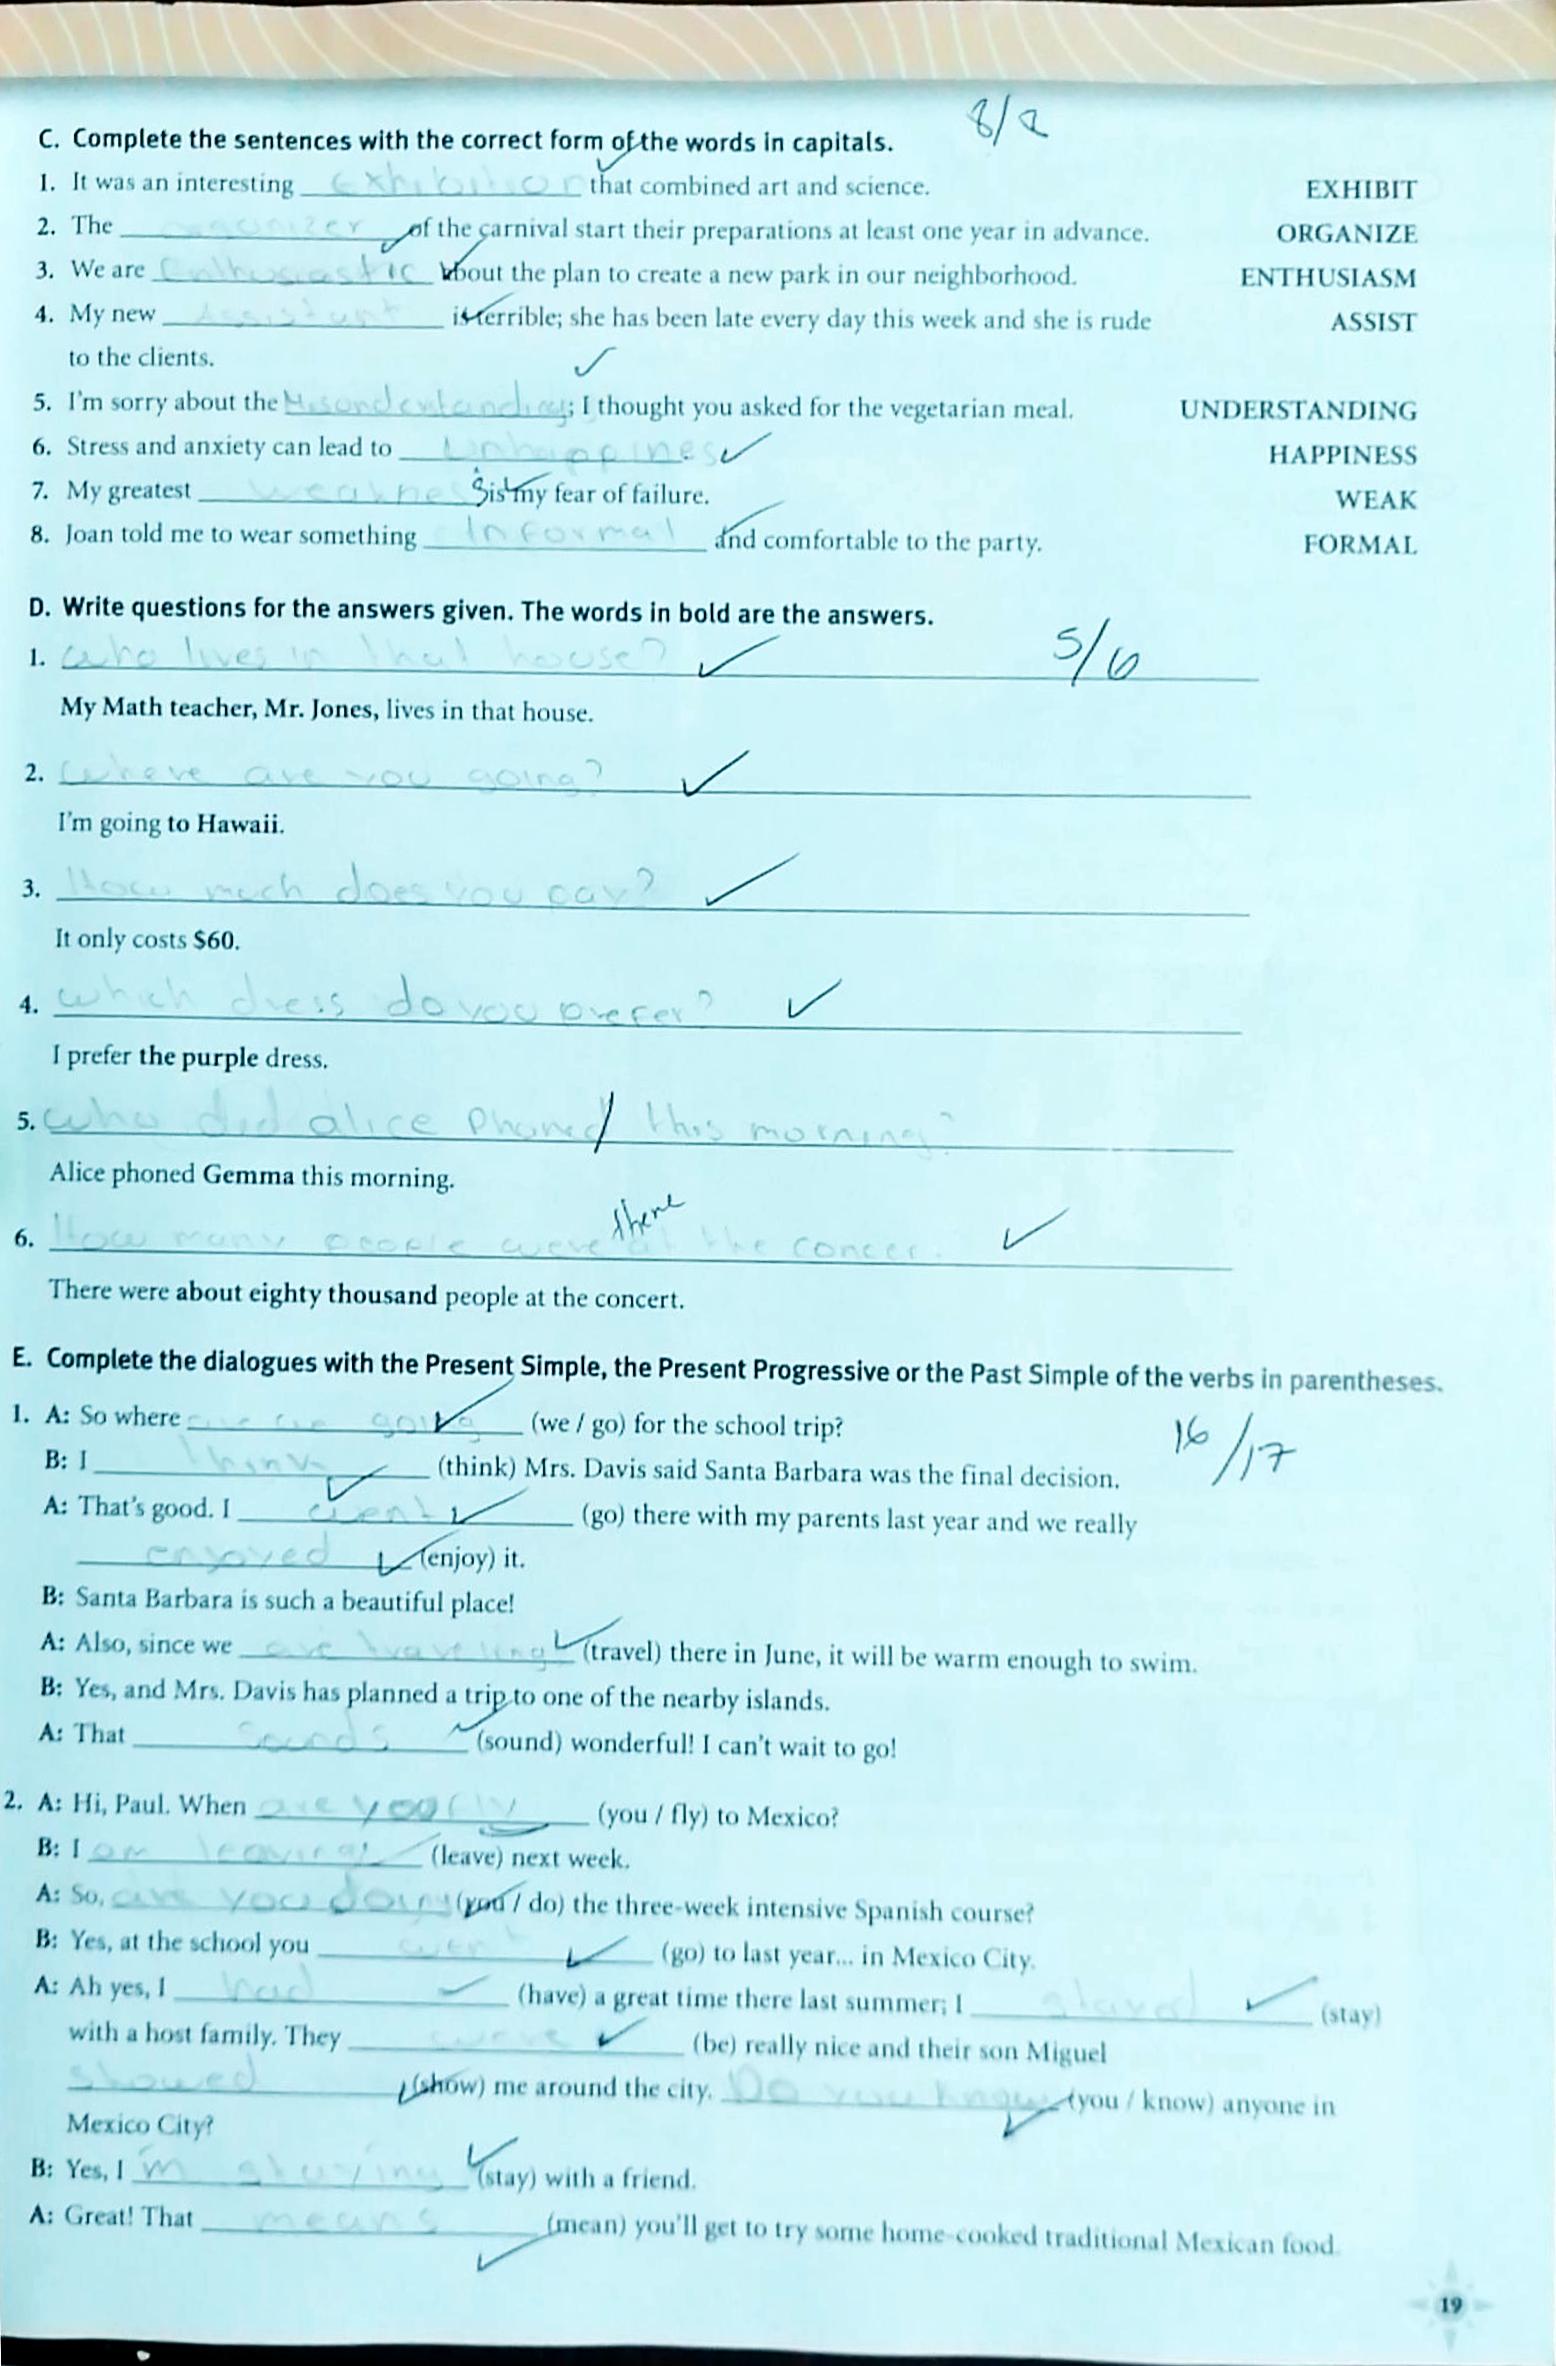 8/8
C. Complete the sentences with the correct form of the words in capitals.
1. It was an interesting exhibition that combined art and science. EXHIBIT
2. The organizer of the carnival start their preparations at least one year in advance. ORGANIZE
3. We are Enthusiastic about the plan to create a new park in our neighborhood. ENTHUSIASM
4. My new Assistant is terrible; she has been late every day this week and she is rude ASSIST
to the clients.
5. I'm sorry about the Misonderstanding; I thought you asked for the vegetarian meal. UNDERSTANDING
6. Stress and anxiety can lead to Unhappines HAPPINESS
7. My greatest weakness is my fear of failure. WEAK
8. Joan told me to wear something Informal and comfortable to the party. FORMAL
D. Write questions for the answers given. The words in bold are the answers.
5/6
1. who lives in that house?
My Math teacher, Mr. Jones, lives in that house.
2. where are you going?
I'm going to Hawaii.
3. How much does you pay?
It only costs $60.
4. which dress do you prefer?
I prefer the purple dress.
5. who did alice phoned this morning?
Alice phoned Gemma this morning.
there
6. How many people were at the concer.
There were about eighty thousand people at the concert.
E. Complete the dialogues with the Present Simple, the Present Progressive or the Past Simple of the verbs in parentheses.
16/17
1. A: So where going (we / go) for the school trip?
B: I think (think) Mrs. Davis said Santa Barbara was the final decision.
A: That's good. I went (go) there with my parents last year and we really
enjoyed (enjoy) it.
B: Santa Barbara is such a beautiful place!
A: Also, since we are traveling (travel) there in June, it will be warm enough to swim.
B: Yes, and Mrs. Davis has planned a trip to one of the nearby islands.
A: That sounds (sound) wonderful! I can't wait to go!
2. A: Hi, Paul. When are you fly (you / fly) to Mexico?
B: I am leaving (leave) next week.
A: So, are you doing (you / do) the three-week intensive Spanish course?
B: Yes, at the school you went (go) to last year... in Mexico City.
A: Ah yes, I had (have) a great time there last summer; I stayed (stay)
with a host family. They were (be) really nice and their son Miguel
showed (show) me around the city. Do you know (you / know) anyone in
Mexico City?
B: Yes, I 'm staying (stay) with a friend.
A: Great! That means (mean) you'll get to try some home-cooked traditional Mexican food.
19